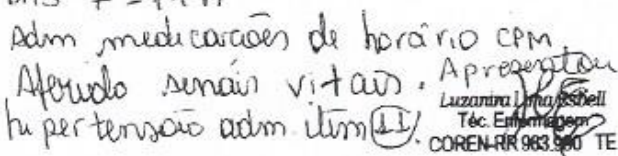 Adm medicações de horário CPM.
Aferido sinais vitais. Apresentou
hipertensão adm. item 11.
Téc. Enfermagem
COREN-RR 963.990 TE